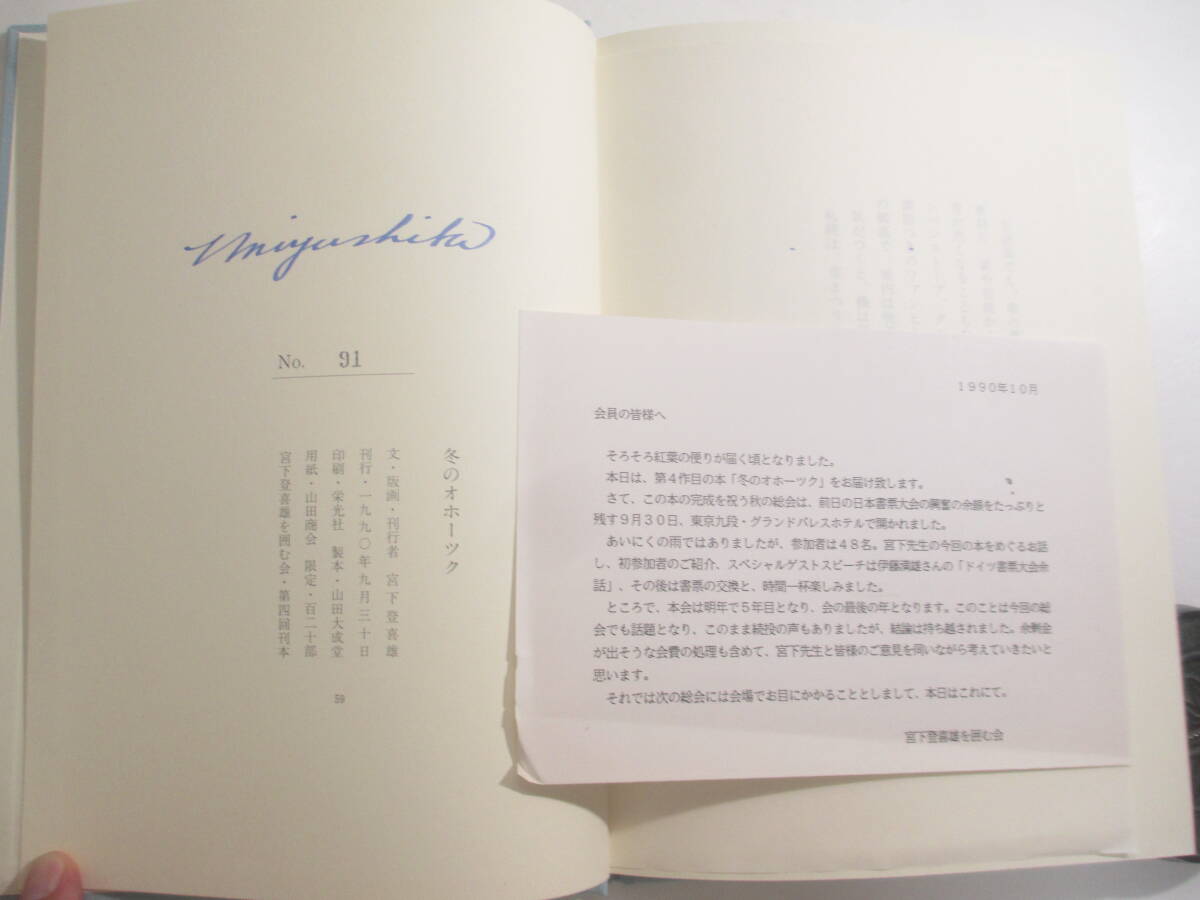 Miyashita
No. 91
冬のオホーツク
文・版画・刊行者 宮下登喜雄
刊行・一九九〇年九月三十日
印刷・栄光社 製本・山田大成堂
用紙・山田商会 限定・百二十部
宮下登喜雄を囲む会・第四回刊本
59
1990年10月
会員の皆様へ
そろそろ紅葉の便りが届く頃となりました。
本日は、第4作目の本「冬のオホーツク」をお届け致します。
さて、この本の完成を祝う秋の総会は、前日の日本書票大会の興奮の余韻をたっぷりと
残す9月30日、東京九段・グランドパレスホテルで開かれました。
あいにくの雨ではありましたが、参加者は48名。宮下先生の今回の本をめぐるお話
し、初参加者のご紹介、スペシャルゲストスピーチは伊藤満雄さんの「ドイツ書票大会余
話」、その後は書票の交換と、時間一杯楽しみました。
ところで、本会は明年で5年目となり、会の最後の年となります。このことは今回の総
会でも話題となり、このまま続投の声もありましたが、結論は持ち越されました。余剰金
が出そうな会費の処理も含めて、宮下先生と皆様のご意見を伺いながら考えていきたいと
思います。
それでは次の総会には会場でお目にかかることとしまして、本日はこれにて。
宮下登喜雄を囲む会